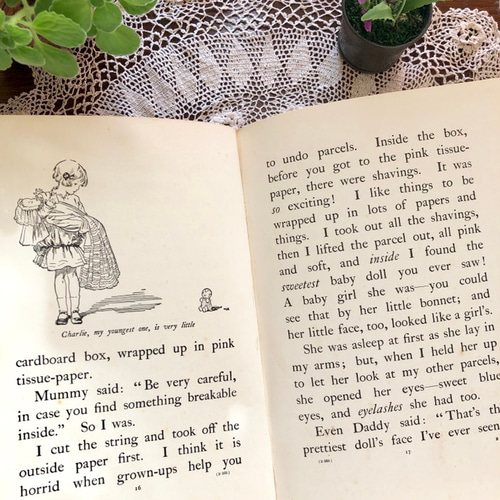 Charlie, my youngest one, is very little
cardboard box, wrapped up in pink
tissue-paper.
Mummy said: “Be very careful,
in case you find something breakable
inside.” So I was.
I cut the string and took off the
outside paper first. I think it is
horrid when grown-ups help you
16
to undo parcels. Inside the box,
before you got to the pink tissue-
paper, there were shavings. It was
so exciting! I like things to be
wrapped up in lots of papers and
things. I took out all the shavings,
then I lifted the parcel out, all pink
and soft, and inside I found the
sweetest baby doll you ever saw!
A baby girl she was—you could
see that by her little bonnet; and
her little face, too, looked like a girl's.
She was asleep at first as she lay in
my arms; but, when I held her up
to let her look at my other parcels,
she opened her eyes—sweet blue
eyes, and eyelashes she had too.
Even Daddy said: “That's th
prettiest doll's face I've ever seen
17